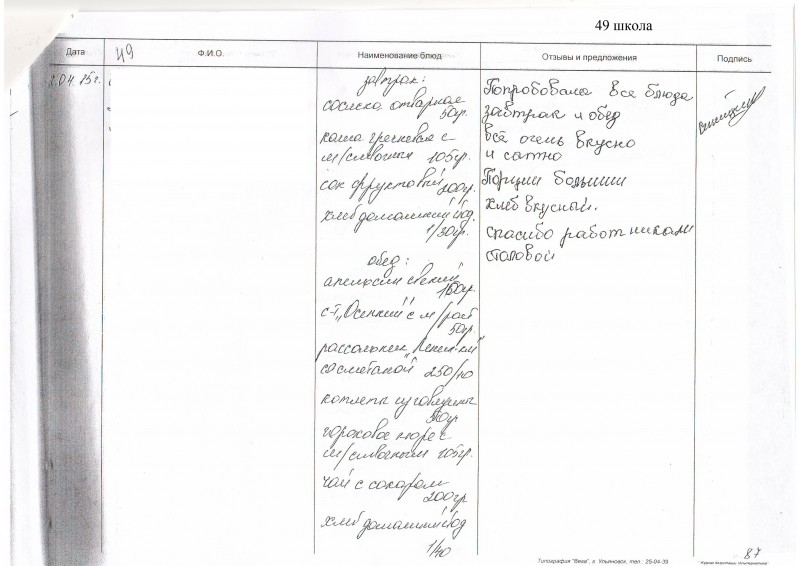 49 школа
Дата
Ф.И.О.
Наименование блюд
Отзывы и предложения
Подпись
49
2.04.25г.
завтрак:
сосиска отварная
50гр.
каша гречневая с
м/сливочным 105гр.
сок фруктовый 200гр.
хлеб домашний йод.
1/30гр.
обед:
апельсин свежий
100гр.
с-т "Осенний" с м/раст
50гр.
рассольник "Ленин-кий"
со сметаной 250/10
котлеты из говядины
50гр
гороховое пюре с
м/сливочным 105гр.
чай с сахаром
200гр
хлеб домашний йод
1/40
Попробовала все блюда
завтрак и обед
всё очень вкусно
и сытно
Порции большии
хлеб вкусный.
спасибо работникам
столовой
87
Типография "Вега", г. Ульяновск, тел.: 25-04-39